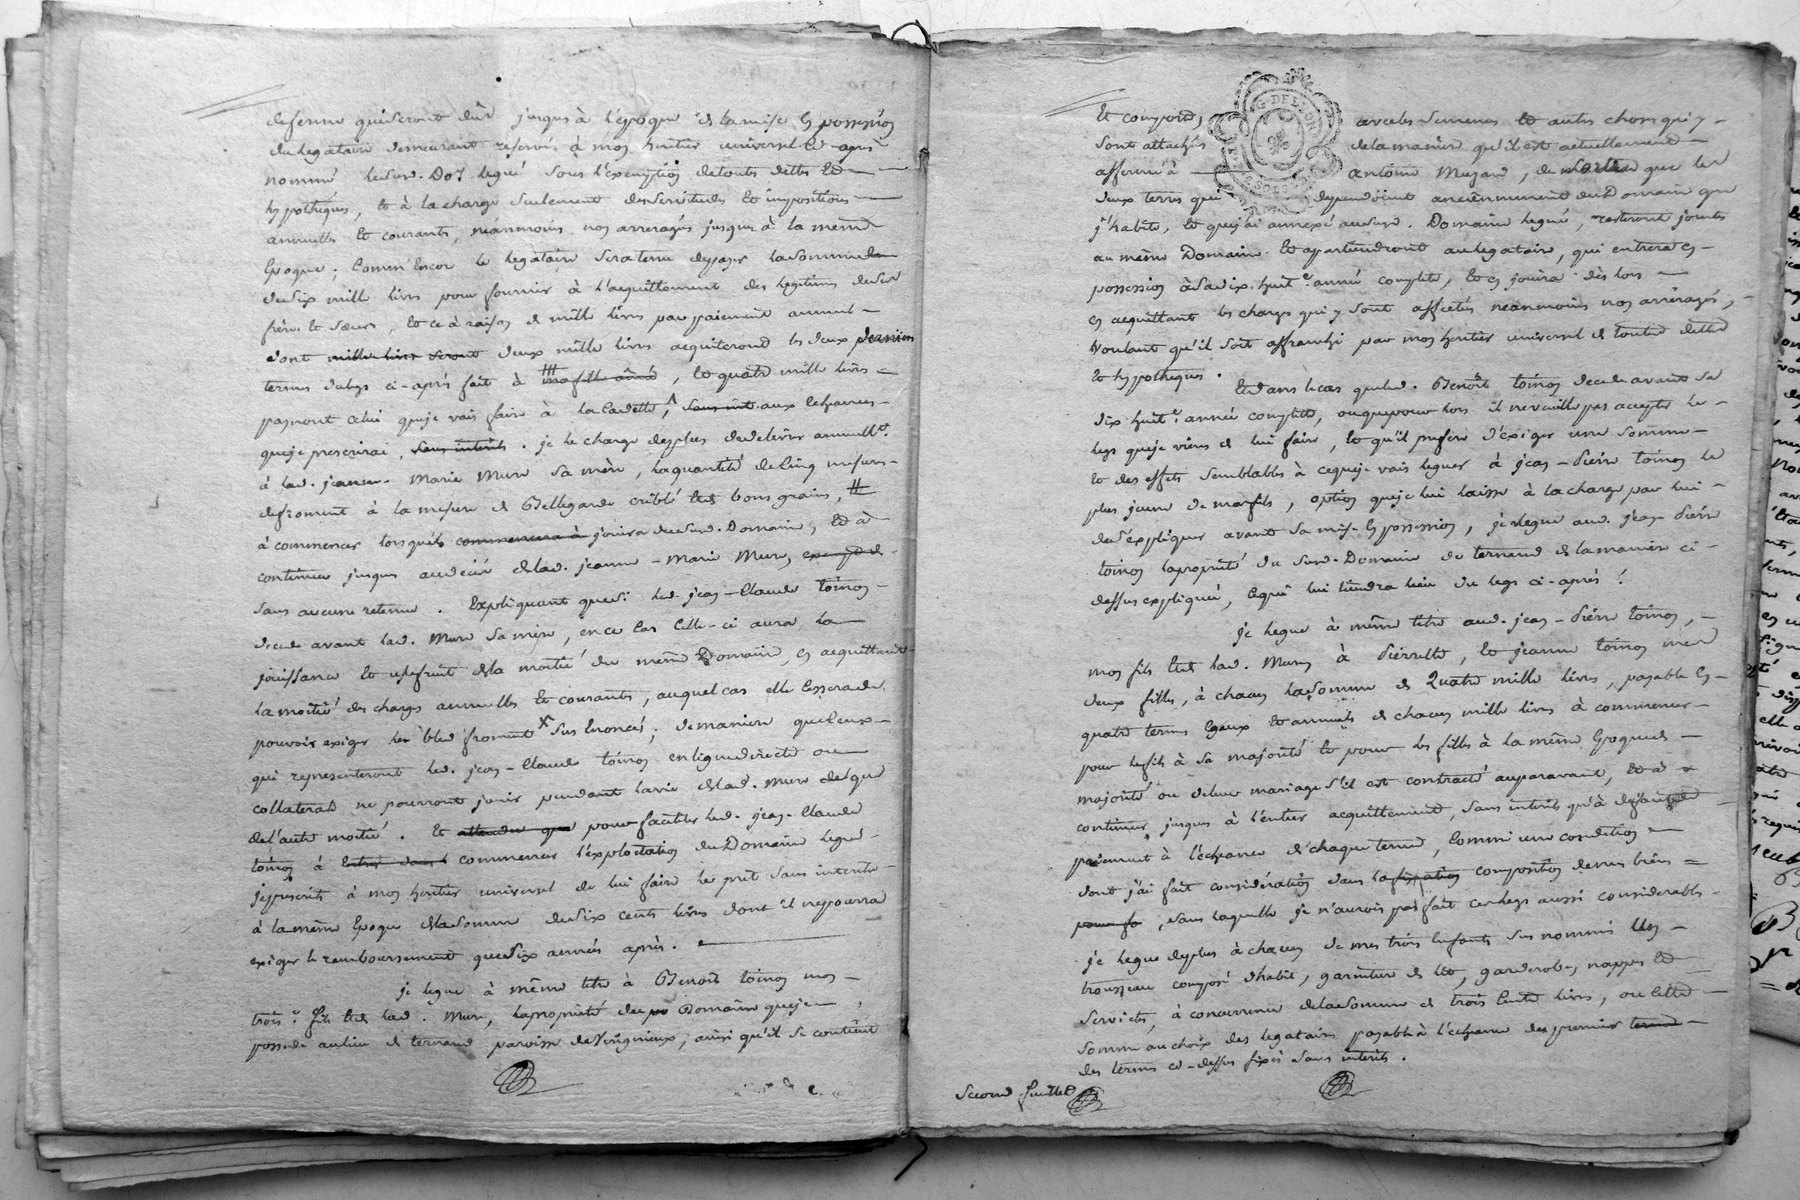 de ferme qui seront dûs jusques à l'époque de la mise en possession
du legataire demeurant reservés à mon heritier universel cy-après
nommé led. sus. Do.^e legué sous l'exemption de touts dettes et
hypothéques, et à la charge seulement des servitudes et impositions
annuelles et courants, néanmoins nos arreragés jusques à la même
Epoque; Comm'Encor le legataire sera tenu de payer la somme de
de six mille livres pour fournir à l'acquittement des legitimes de ses
frère et sœurs, et ce à raison de mille livres par paiement annuel
dont mille livres seront deux mille livres aquiteront les deux premiers
termes du legs ci-après fait à ma fille aînée, et quatre mille livres
payeront celui que je vais faire à la Cadette, sans int. aux Echeances
que je prescrirai, sans interets. je le charge de plus de delivrer annuell.^t
à lad. jeanne Marie Mure sa mère, la quantité de Cinq mesures
de froment à la mesure de Bellegarde criblé et des bons grains,
à commencer lorsqu'il commencera à jouira du sus. Domaine, et à
continuer jusques au decés de lad. jeanne-Marie Mure,
sans aucune retenue. Expliquant que si led. jean-Claude toinon
decede avant lad. Mure sa mère, en ce Cas Celle-ci aura la
jouissance et usufruit de la moitié du même Domaine, en acquittant
la moitié des charges annuelles et courants, auquel cas elle cessera de
pouvoir exiger le bled froment sus Enoncés; de maniere que ceux
qui representeront led. jean-Claude toinon en ligne directe ou
collaterale ne pourront jouir pendant la vie de lad. Mure de que
de l'autre moitié. Et attendu que pour faciliter led. jean-Claude
toinon à commencer l'exploitation du Domaine legué
je prescrits à mon heritier universel de lui faire le prêt sans interets
à la même Epoque de la somme de six cents livres dont il ne pourra
exiger le remboursement que dix années après.
je legue à même titre à Benoit toinon mon
trois.^e fils et de lad. Mure, la propriété du Domaine que je
possede au lieu de ternand paroisse de Virigneux, ainsi qu'il se contient
et comporte, avec les semences et autres choses qui y
sont attachés de la maniere qu'il est actuellement
affermé à antoine Muzard, de sorte que les
deux terres qui dependoient anciennement du Domaine que
j'habite, et que j'ai annexé au sus. Domaine legué, resteront jointes
au même Domaine et apartiendront au legataire, qui entrera en
possession à sa dix-huit.^e année complete, et en jouira dès lors
en acquittant les charges qui y sont affectés néanmoins nos arréragés,
Voulant qu'il soit affranchi par mon heritier universel de toute dette
et hypothéques.
Et dans le cas que led. Benoît toinon decede avant sa
dix huit.^e année complette, ou que pour lors il ne veuille pas accepter le
legs que je viens de lui faire, et qu'il prefere d'exiger une somme
et des effets semblables à ce que je vais leguer à jean-Pierre toinon le
plus jeune de mes fils, option que je lui laisse à la charge par lui
de s'expliquer avant sa mise en possession, je legue aud. jean-Pierre
toinon la propriété du sus. Domaine de ternand de la maniere ci
dessus expliquée, ce qui lui tiendra lieu du legs ci-après.
Je legue à même titre aud. jean-Pierre toinon,
mon fils et de lad. Mure, à Pierrette, et jeanne toinon mes
deux filles, à chacun la somme de Quatre mille livres, payable En
quatre termes Egaux et annuels de chacun mille livres à commencer
pour le fils à sa majorité et pour les filles à la même Epoque de
majorité ou de leur mariage s'il est contracté auparavant, et à
continuer jusques à l'entier acquittement, sans interets qu'à defaut de
paiement à l'echeance de chaque terme, Comme une condition
dont j'ai fait considération dans la fixation composition de mes biens
pour fo, sans laquelle je n'aurois pas fait ces legs aussi considerables
je legue de plus à chacun de mes trois Enfants sus nommés Un
trousseau composé d'habit, garniture de lit, garderobe, nappes et
Services, à concurrence de la somme de trois Cents livres, ou Cette
Somme au choix des legataires payable à l'echeance des premiers terme
des termes ci-dessus fixés sans interets.
Second feuillet
G. DE LYON